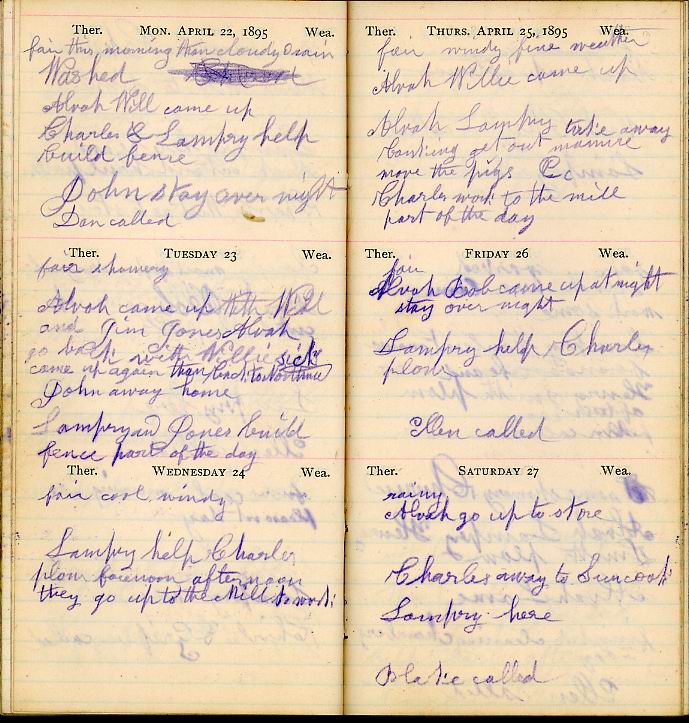 Ther. MON. APRIL 22, 1895 Wea.
fair this morning than cloudy & rain
Washed
Alvah Will came up
Charles & Lampry help
build fence
John stay over night
Dan called
Ther. TUESDAY 23 Wea.
fair showery
Alvah came up with Will
and Jim Jones Alvah
go back with Willie sick
came up again than back to
John away home
Lampry and Jones build
fence part of the day
Ther. WEDNESDAY 24 Wea.
fair cool windy
Lampry help Charles
plow forenoon afternoon
they go up to the Mill to work
Ther. THURS. APRIL 25, 1895 Wea.
fair windy fine weather
Alvah Willie came up
Alvah Lampry take away
banking get out manure
move the pigs
Charles work to the mill
part of the day
Ther. FRIDAY 26 Wea.
fair
Alvah Bob came up at night
stay over night
Lampry help Charles
plow
Ellen called
Ther. SATURDAY 27 Wea.
rainy
Alvah go up to store
Charles away to Suncook
Lampry here
called